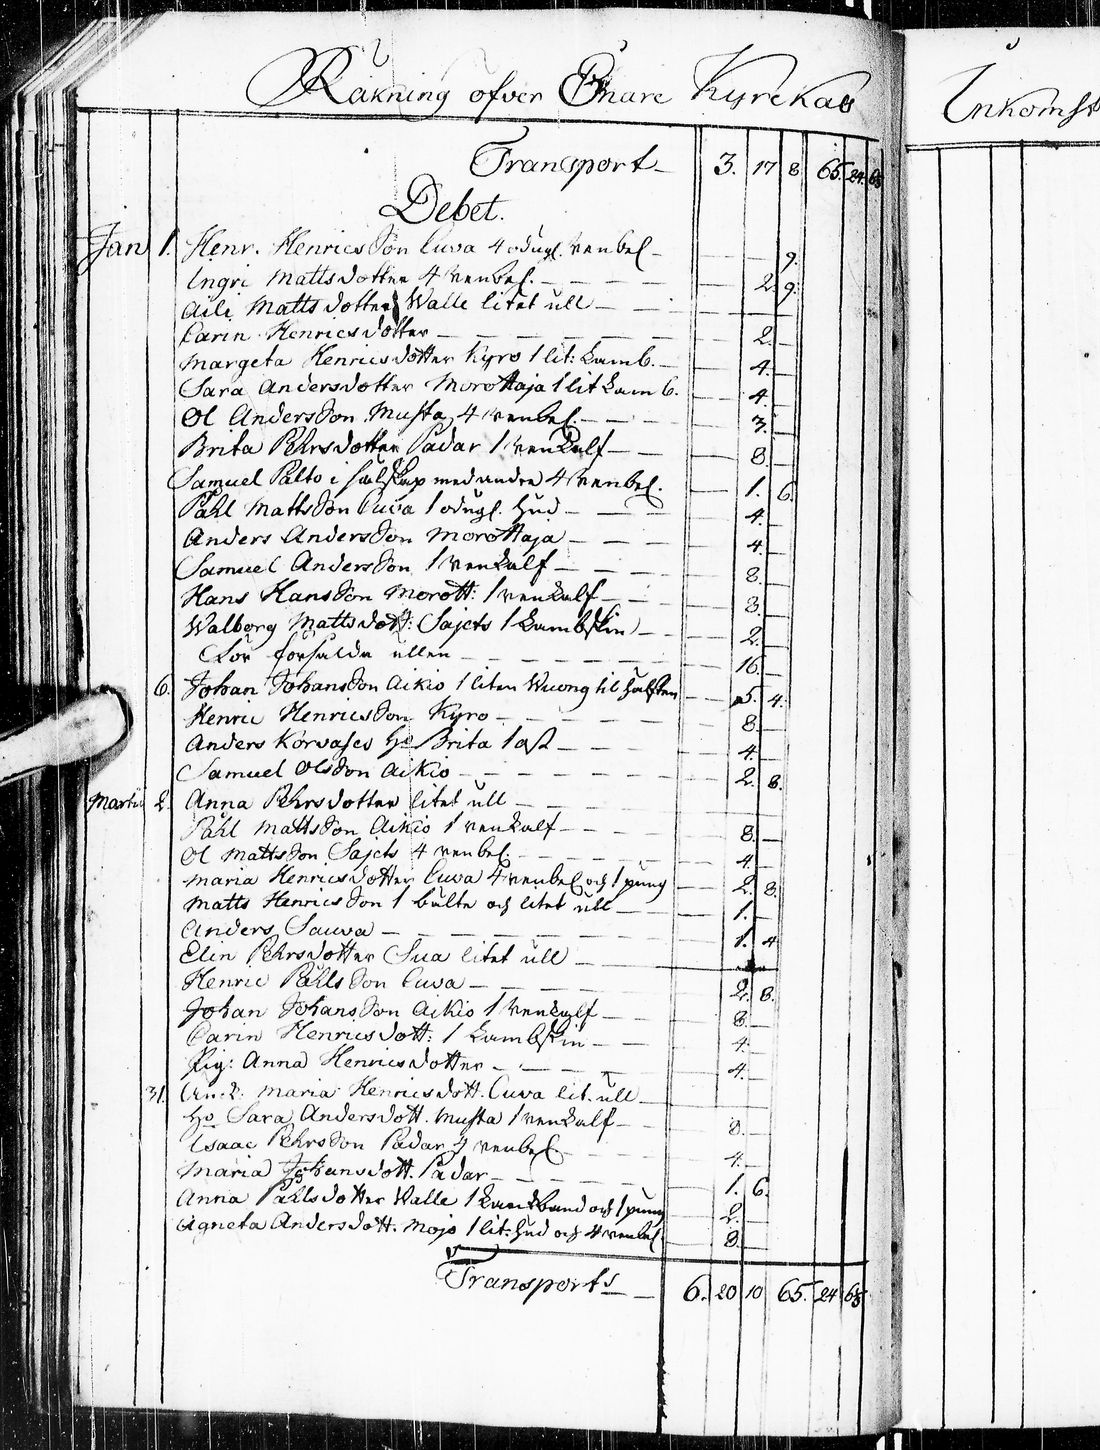 Räkning öfver Enare Kyrckas
Inkomst
Transport 3. 17 8. 65. 24. 68
Debet.
Jan 1. Henr. Henrics Son Cuva 4 odugl. renbel. 9.
Ingri Matts dotter 4 renbel. 2. 9.
Aili Matts dotter Walle litet ull
Carin Henrics dotter 2.
Margeta Henrics dotter Kyro 1 lit: Lamb. 4.
Sara Anders dotter Morottaja 1 lit Lamb. 4.
Ol Anders Son Musta 4 renbel. 3.
Brita Pehrs dotter Padar 1 renkalf 8.
Samuel Palto i sälskap med andra 4 renbel. 1. 6.
Påhl Matts Son Cuva 1 odugl. hud 4.
Anders Anders Son Morottaja 4.
Samuel Anders Son 1 renkalf 8.
Hans Hans Son Morott: 1 renkalf 8.
Walborg Matts dott: Sajets 1 Lambskin 2.
för försålda ullen 16.
6. Johan Johans Son Aikio 1 liten Wuong til hälften 5. 4.
Henric Henrics Son Kyro 8.
Anders Korvases Ho Brita 1 ost 4.
Samuel Ols Son Aikio 2. 8.
Marti 2. Anna Pehrs dotter litet ull
Påhl Matts Son Aikio 1 renkalf 8.
Ol Matts Son Sajets 4 renbel. 4.
Maria Henrics dotter Cuva 4 renbel och 1 pung 2. 8.
Matts Henrics Son 1 bälte och litet ull 1.
Anders Sauva 1. 4
Elin Pehrs dotter Sua litet ull
Henric Påhls Son Cuva 2. 8.
Johan Johans Son Aikio 1 renkalf 8.
Carin Henrics dott: 1 Lambskin 4.
Pig: Anna Henrics dotter 4.
31. Maria Henrics dott. Cuva lit. ull
Ho Sara Anders dott. Musta 1 renkalf 8.
Isaac Pehrs Son Padar 4 renbel. 4.
Maria Johans dott. Padar 1. 6.
Anna Påhls dotter Walle 1 band och 1 pung 2.
Agneta Anders dott. Mojo 1 lit: hud och 4 renbel. 8.
Transports 6. 20 10 65. 24 68